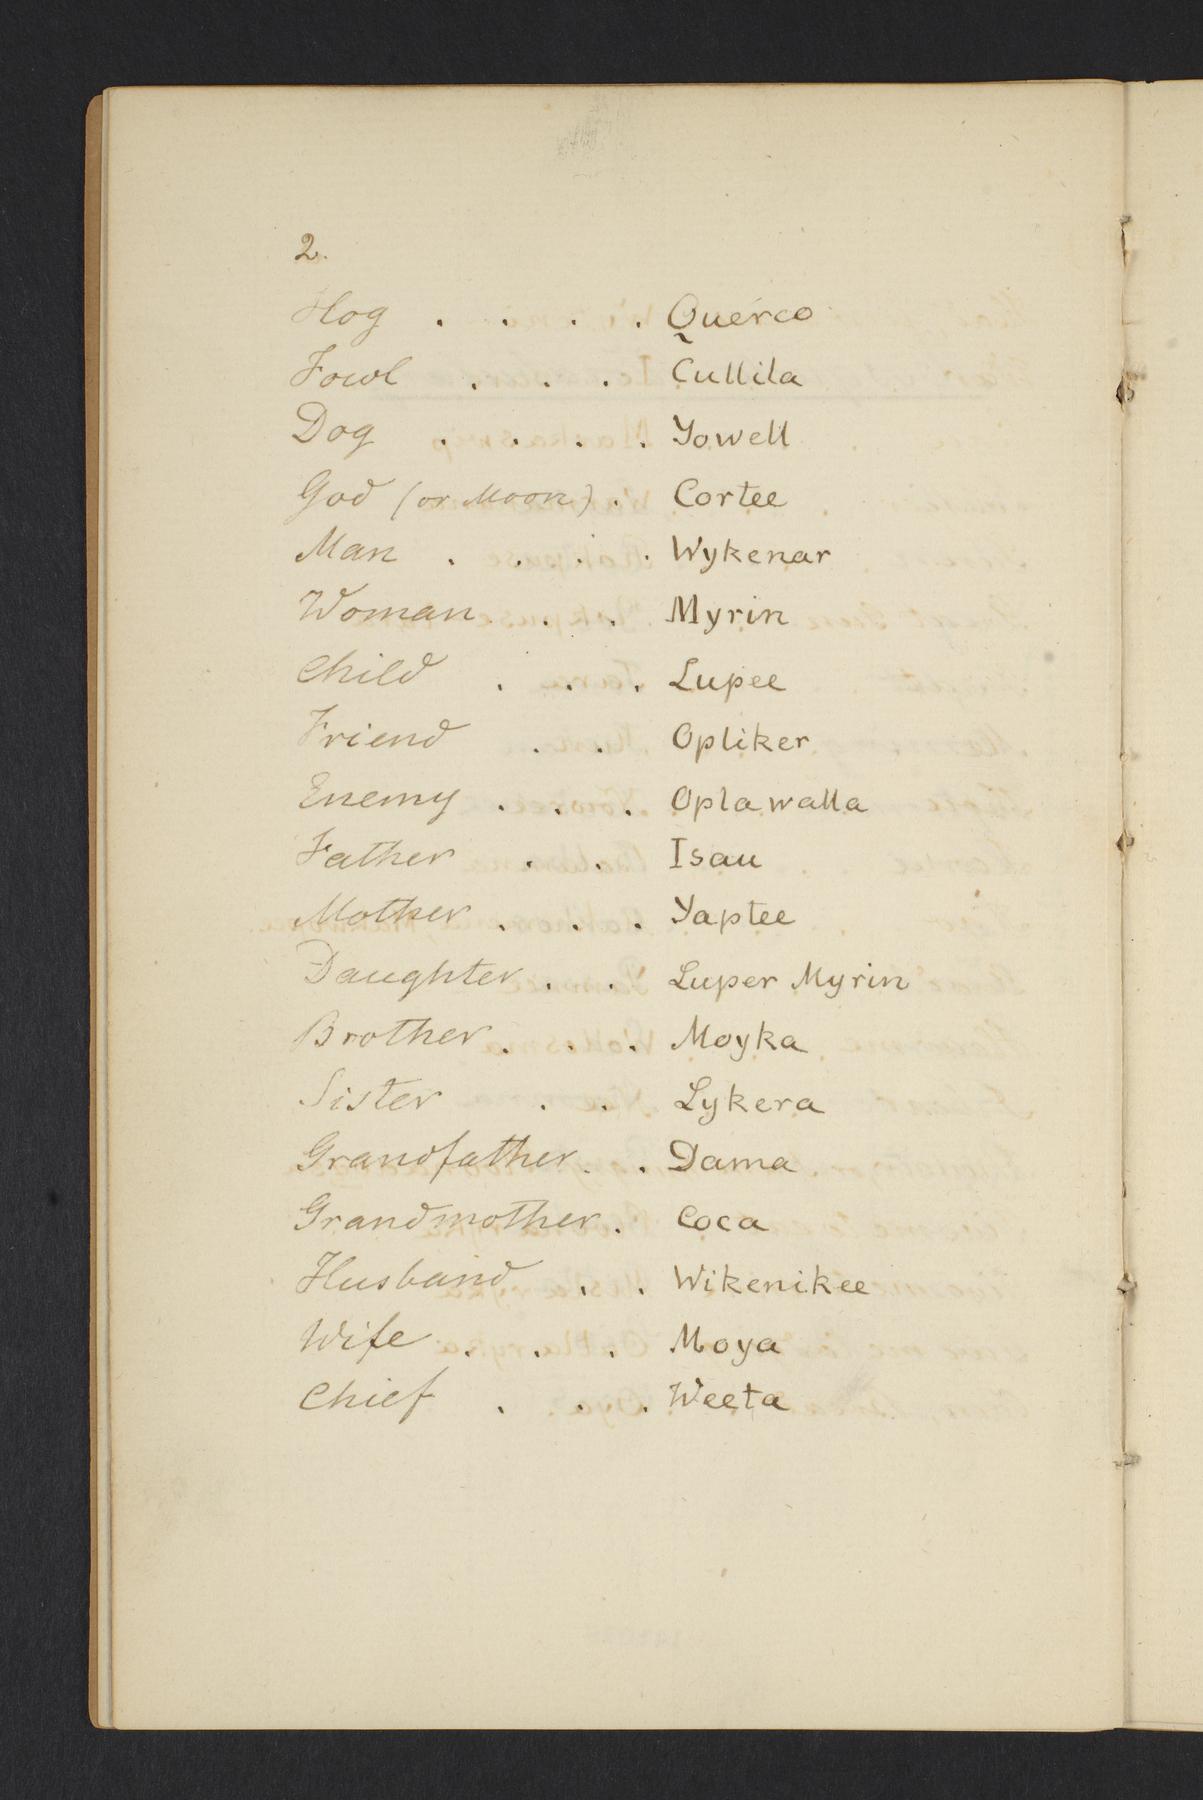 2.
Hog . . . . Querco
Fowl . . . Cullila
Dog . . . . Yowell
God (or Moon) . Cortee
Man . . . . Wykenar
Woman . . Myrin
Child . . . Lupee
Friend . . Opliker
Enemy . . . Oplawalla
Father . . Isau
Mother . . . Yaptee
Daughter . . Luper Myrin
Brother . . . Moyka
Sister . . Lykera
Grandfather . . Dama
Grandmother . Coca
Husband . . Wikenikee
Wife . . . Moya
Chief . . . Weeta